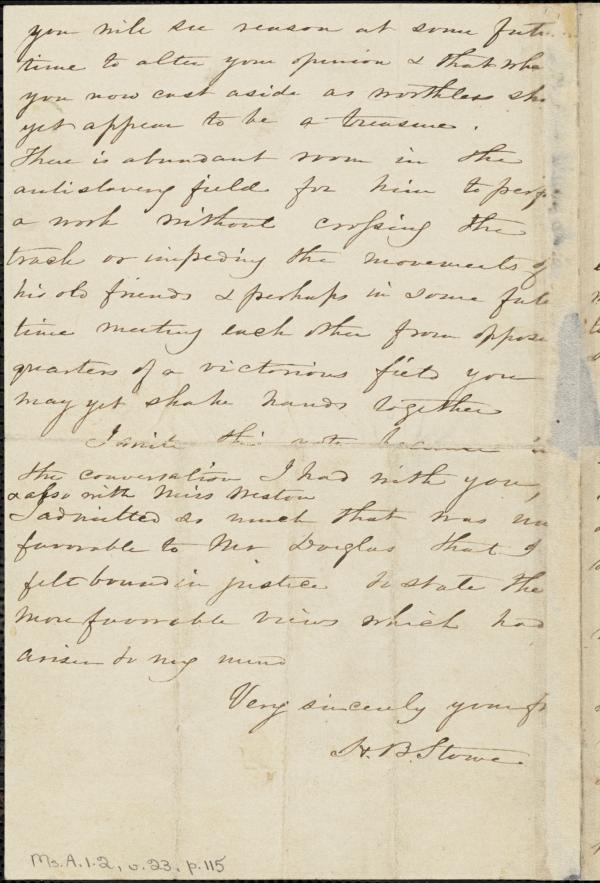 you will see reason at some futu
time to alter your opinion & that wha
you now cast aside as worthless sha
yet appear to be a treasure.
There is abundant room in the
antislavery field for him to perf
a work without crossing the
track or impeding the movements of
his old friends & perhaps in some futu
time meeting each other from oppose
quarters of a victorious field you
may yet shake hands together
I write this note because in
the conversation I had with you,
& also with Miss Weston
I admitted so much that was un
favorable to Mr Douglas that I
felt bound in justice to state the
more favorable views which had
arisen to my mind
Very sincerely your fr
H. B. Stowe
Ms. A. 1. 2, v. 23, p. 115